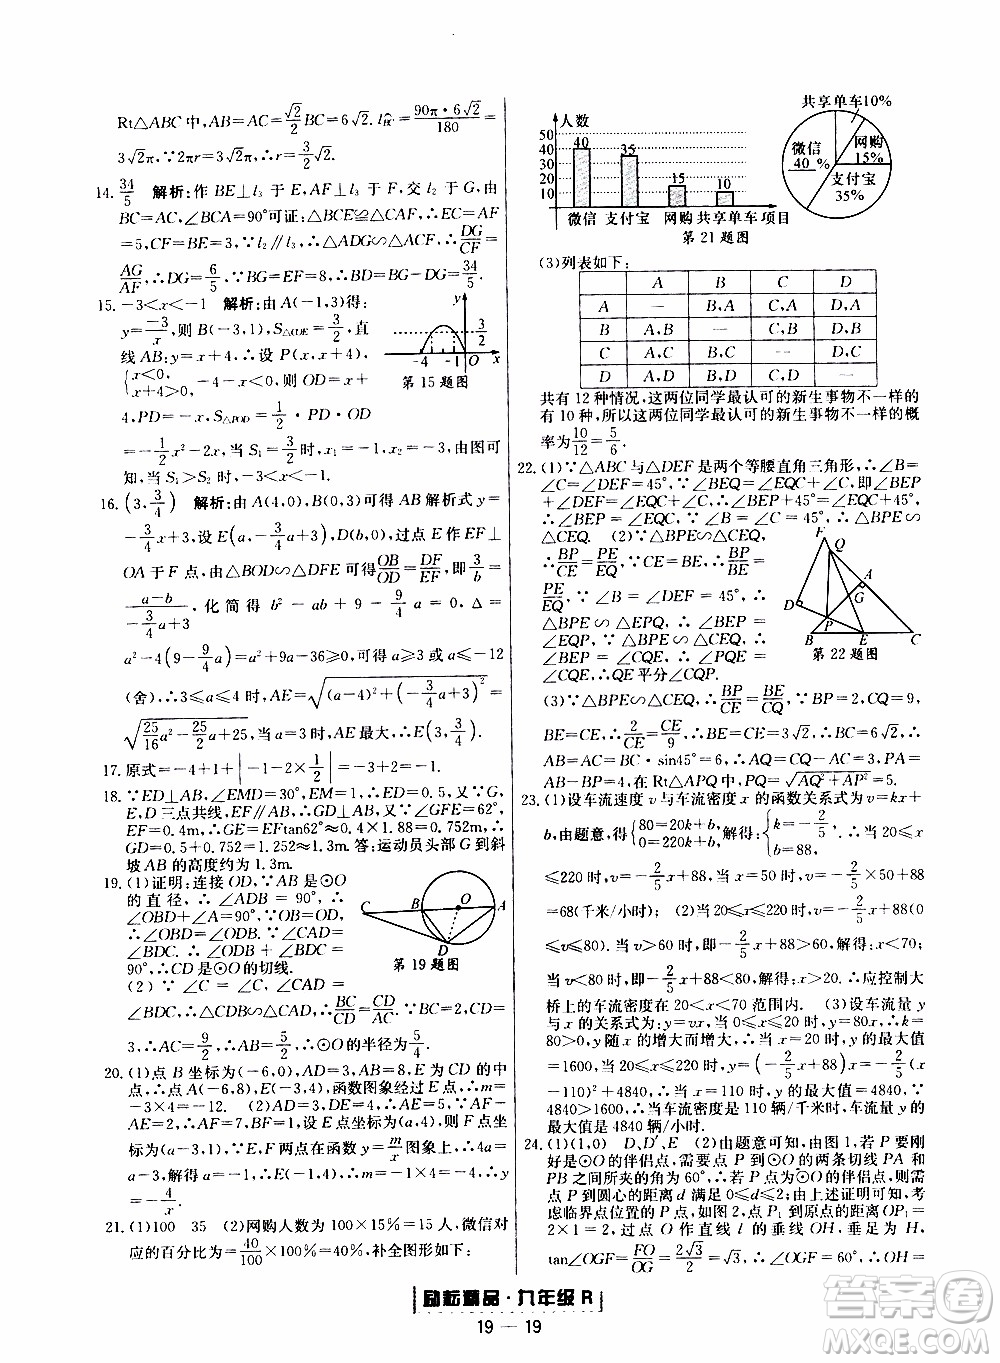 Rt△ABC中,AB=AC=√2/2 BC=6√2. l⌒BC=90π·6√2/180=
3√2π,∵2πr=3√2π,∴r=3/2 √2.
14. 34/5 解析:作BE⊥l₃于E,AF⊥l₃于F,交l₂于G,由
BC=AC,∠BCA=90°可证:△BCE≌△CAF,∴CE=AF
=5,CF=BE=3,∵l₂∥l₃,∴△ADG∽△ACF,∴DG/CF=
AG/AF,∴DG=6/5,∵BG=EF=8,∴BD=34/5.
15. -3<x<-1 解析:由A(-1,3)得:
y=-3/x,则B(-3,1),S△COE=3/2,直
线AB:y=x+4,∴设P(x,x+4),
{x<0, x+4>0},-4<x<0,则OD=x+
4,PD=-x,S△POD=1/2·PD·OD
=-1/2x²-2x,当S₁=3/2时,x₁=-1,x₂=-3,由图可
知,当S₁>S₂时,-3<x<-1.
16. (3,3/4) 解析:由A(4,0),B(0,3)可得AB解析式y=
-3/4x+3,设E(a,-3/4a+3),D(b,0),过点E作EF⊥
OA于F点,由△BOD∽△DFE可得OB/OD=DF/EF,即3/b=
a-b/(-3/4a+3),化简得b²-ab+9-9/4a=0,Δ=
a²-4(9-9/4a)=a²+9a-36≥0,可得a≥3或a≤-12
(舍),∴3≤a≤4时,AE=√((a-4)²+(-3/4a+3)²)
=√(25/16a²-25/2a+25),当a=3时,AE最大,∴E(3,3/4).
17. 原式=-4+1+|1-2×1/2|=-3+2=-1.
18. ∵ED⊥AB,∠EMD=30°,EM=1,∴ED=0.5,又∵G,
E,D三点共线,EF∥AB,∴GD⊥AB,又∵∠GFE=62°,
EF=0.4m,∴GE=EFtan62°=0.4×1.88=0.752m,
GD=0.5+0.752=1.252≈1.3m.答:运动员头部G到斜
坡AB的高度约为1.3m.
19. (1)证明:连接OD,∵AB是⊙O
的直径,∴∠ADB=90°,∴
∠OBD+∠A=90°,∵OB=OD,
∴∠OBD=∠ODB,∵∠A=
∠BDC.∴∠ODB+∠BDC=
90°,∴CD是⊙O的切线.
(2)∵∠C=∠C,∠CAD=
∠BDC,∴△CDB∽△CAD,∴BC/CD=CD/AC,∵BC=2,CD=
3,∴AC=9/2,∴AB=AC-BC=5/2,∴⊙O的半径为5/4.
20. (1)点B坐标为(-6,0),AD=3,AB=8,E为CD的中
点,∴点A(-6,8),E(-3,4),函数图象经过E点,∴m=
-3×4=-12. (2)AD=3,DE=4,∴AE=5,∵AF-AE
=2,∴AF=7,BF=1,设E点坐标为(a,4),则F点坐标为
(a-3,1),∵E,F两点在函数y=m/x图象上,∴4a=a-
3,解得a=-1,∴E(-1,4),∴m=-1×4=-4,∴y=
-4/x.
21. (1)100 35 (2)网购人数为100×15%=15人,微信对
应的百分比为=40/100×100%=40%,补全图形如下:
人数
50
40
30
20
10
0
40
35
15
10
微信 支付宝 网购 共享单车 项目
共享单车10%
微信 40%
网购 15%
支付宝 35%
第21题图
(3)列表如下:
A B C D
A — B,A C,A D,A
B A,B — C,B D,B
C A,C B,C — D,C
D A,D B,D C,D —
共有12种情况,这两位同学最认可的新生事物不一样的
有10种,所以这两位同学最认可的新生事物不一样的概
率为10/12=5/6.
22. (1)∵△ABC与△DEF是两个等腰直角三角形,∴∠B=
∠C=∠DEF=45°,∵∠BEQ=∠EQC+∠C,即∠BEP
+∠DEF=∠EQC+∠C,∴∠BEP+45°=∠EQC+45°,
∴∠BEP=∠EQC,∵∠B=∠C=45°,∴△BPE∽
△CEQ. (2)∵△BPE∽△CEQ,
∴BP/CE=PE/EQ,∵CE=BE,∴BP/BE=
PE/EQ,∵∠B=∠DEF=45°,∴
△BPE∽△EPQ,∴∠BEP=
∠EQP,∵△BPE∽△CEQ,∴
∠BEP=∠CQE,∴∠EQP=
∠CQE,∴QE平分∠CQP.
(3)∵△BPE∽△CEQ,∴BP/CE=BE/CQ,∵BP=2,CQ=9,
BE=CE,∴2/CE=CE/9,∴BE=CE=3√2,∴BC=6√2,∴
AC=AB=BC·sin45°=6,∴AQ=CQ-AC=3,PA=
AB-BP=4,在Rt△APQ中,PQ=√(AQ²+AP²)=5.
23. (1)设车流速度v与车流密度x的函数关系式为v=kx+
b,由题意,得{80=20k+b, 0=220k+b,解得:{k=-2/5, b=88,∴当20≤x
≤220时,v=-2/5x+88,当x=50时,v=-2/5×50+88
=68(千米/小时) (2)当20≤x≤220时,v=-2/5x+88(0
≤v≤80). 当v>60时,即-2/5x+88>60,解得:x<70;当
当v<80时,即-2/5x+88<80,解得:x>20,∴应控制大
桥上的车流密度在20<x<70范围内. (3)设车流量y
与x的关系式为:y=vx,当0≤x≤20时,y=80x,∴k=
80>0,y随x的增大而增大,∴x=20时,y的最大值=
1600,当20≤x≤220时,y=(-2/5x+88)x=-2/5(x
-110)²+4840,∴当x=110时,y的最大值=4840,∵
4840>1600,∴当车流密度是110辆/千米时,车流量y的
最大值是4840辆/小时
24. (1)(1,0) D,D′,E (2)由题意可知,若P要刚
好是⊙O的伴侣点,需要点P到⊙O的两条切线PA和
PB之间所夹的角为60°,∴若P点为⊙O的伴侣点,则需
点P到圆心的距离d满足0≤d≤2r,由上述证明可知,考
虑临界点位置的P点,如图2,点P₁到原点的距离OP₁=
2×1=2,过点O作直线l的垂线OH,垂足为H,
tan∠OGF=FO/OG=2√3/2=√3,∴∠OGF=60°,∴OH=
第15题图
第19题图
第22题图
励耘精品·九年级R
19 — 19
答案圈
MXQE.COM